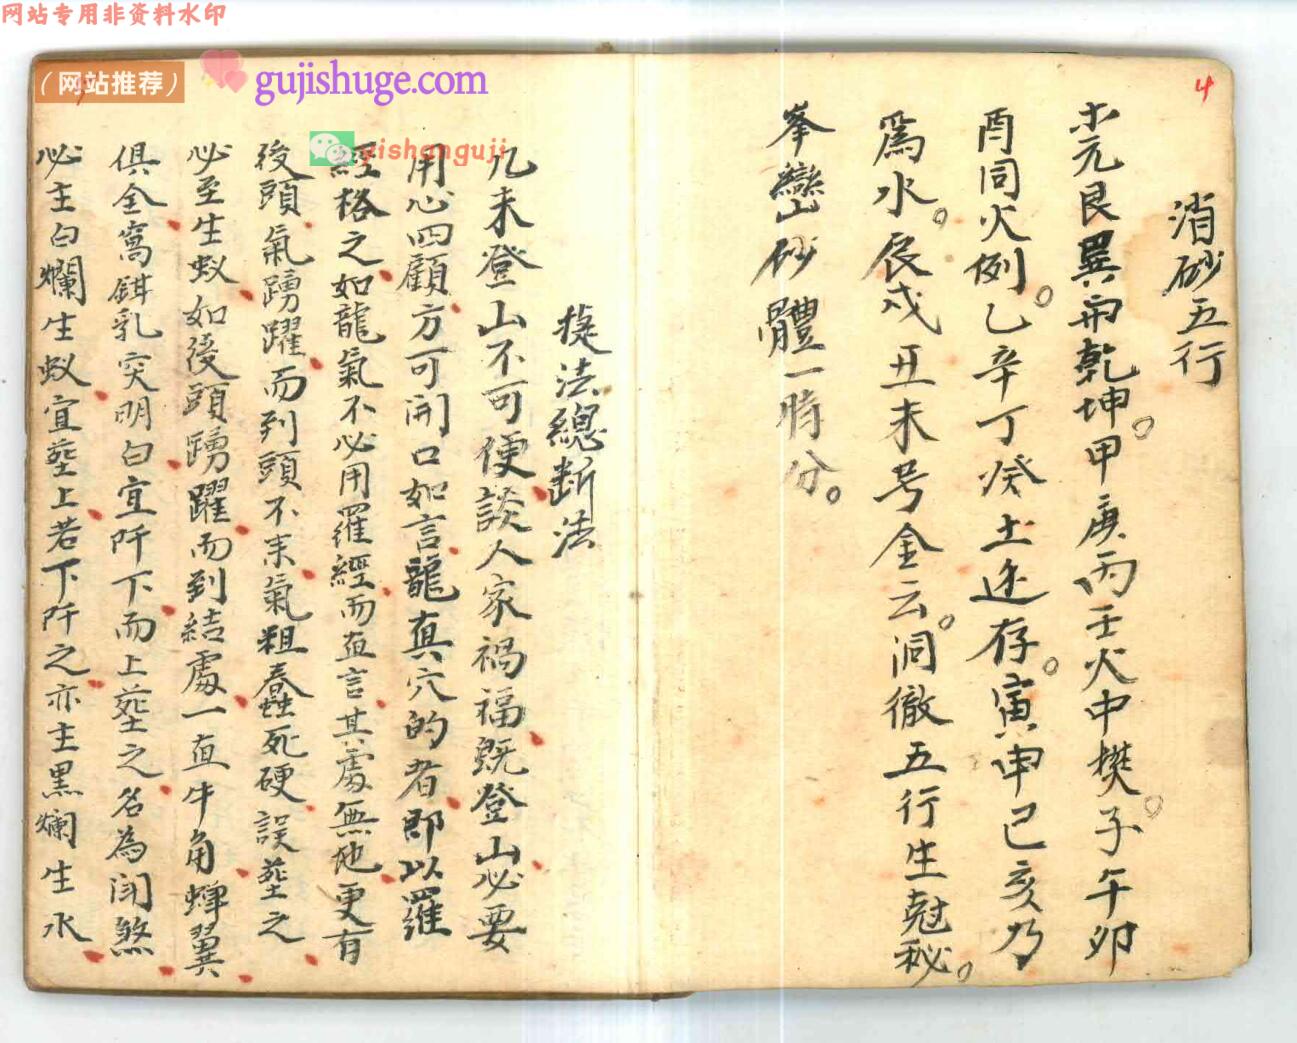 网站专用非资料水印
（网站推荐）
gujishuge.com
yishanguji
4
消砂五行
木元艮巽而乾坤。甲庚丙壬火中樊。子午卯
酉同火例。乙辛丁癸土途存。寅申巳亥乃
為水。辰戌丑未号金云。洞徹五行生尅秘。
峯巒山砂體一時分。
捷法總断法
凡未登山不可便談人家禍福既登山必要
用心四顧方可開口如言龍真穴的者即以羅
經格之如龍氣不必用羅經而直言其處無地更有
後頭氣踴躍而到頭不来氣粗蠢死硬誤塟之
必至生蚁如後頭踴躍而到結處一直牛角蟬翼
俱全窩鉺乳突明白宜阡下而上塟之名為閉煞
必主白爛生蚁宜塟上若下阡之亦主黑爛生水